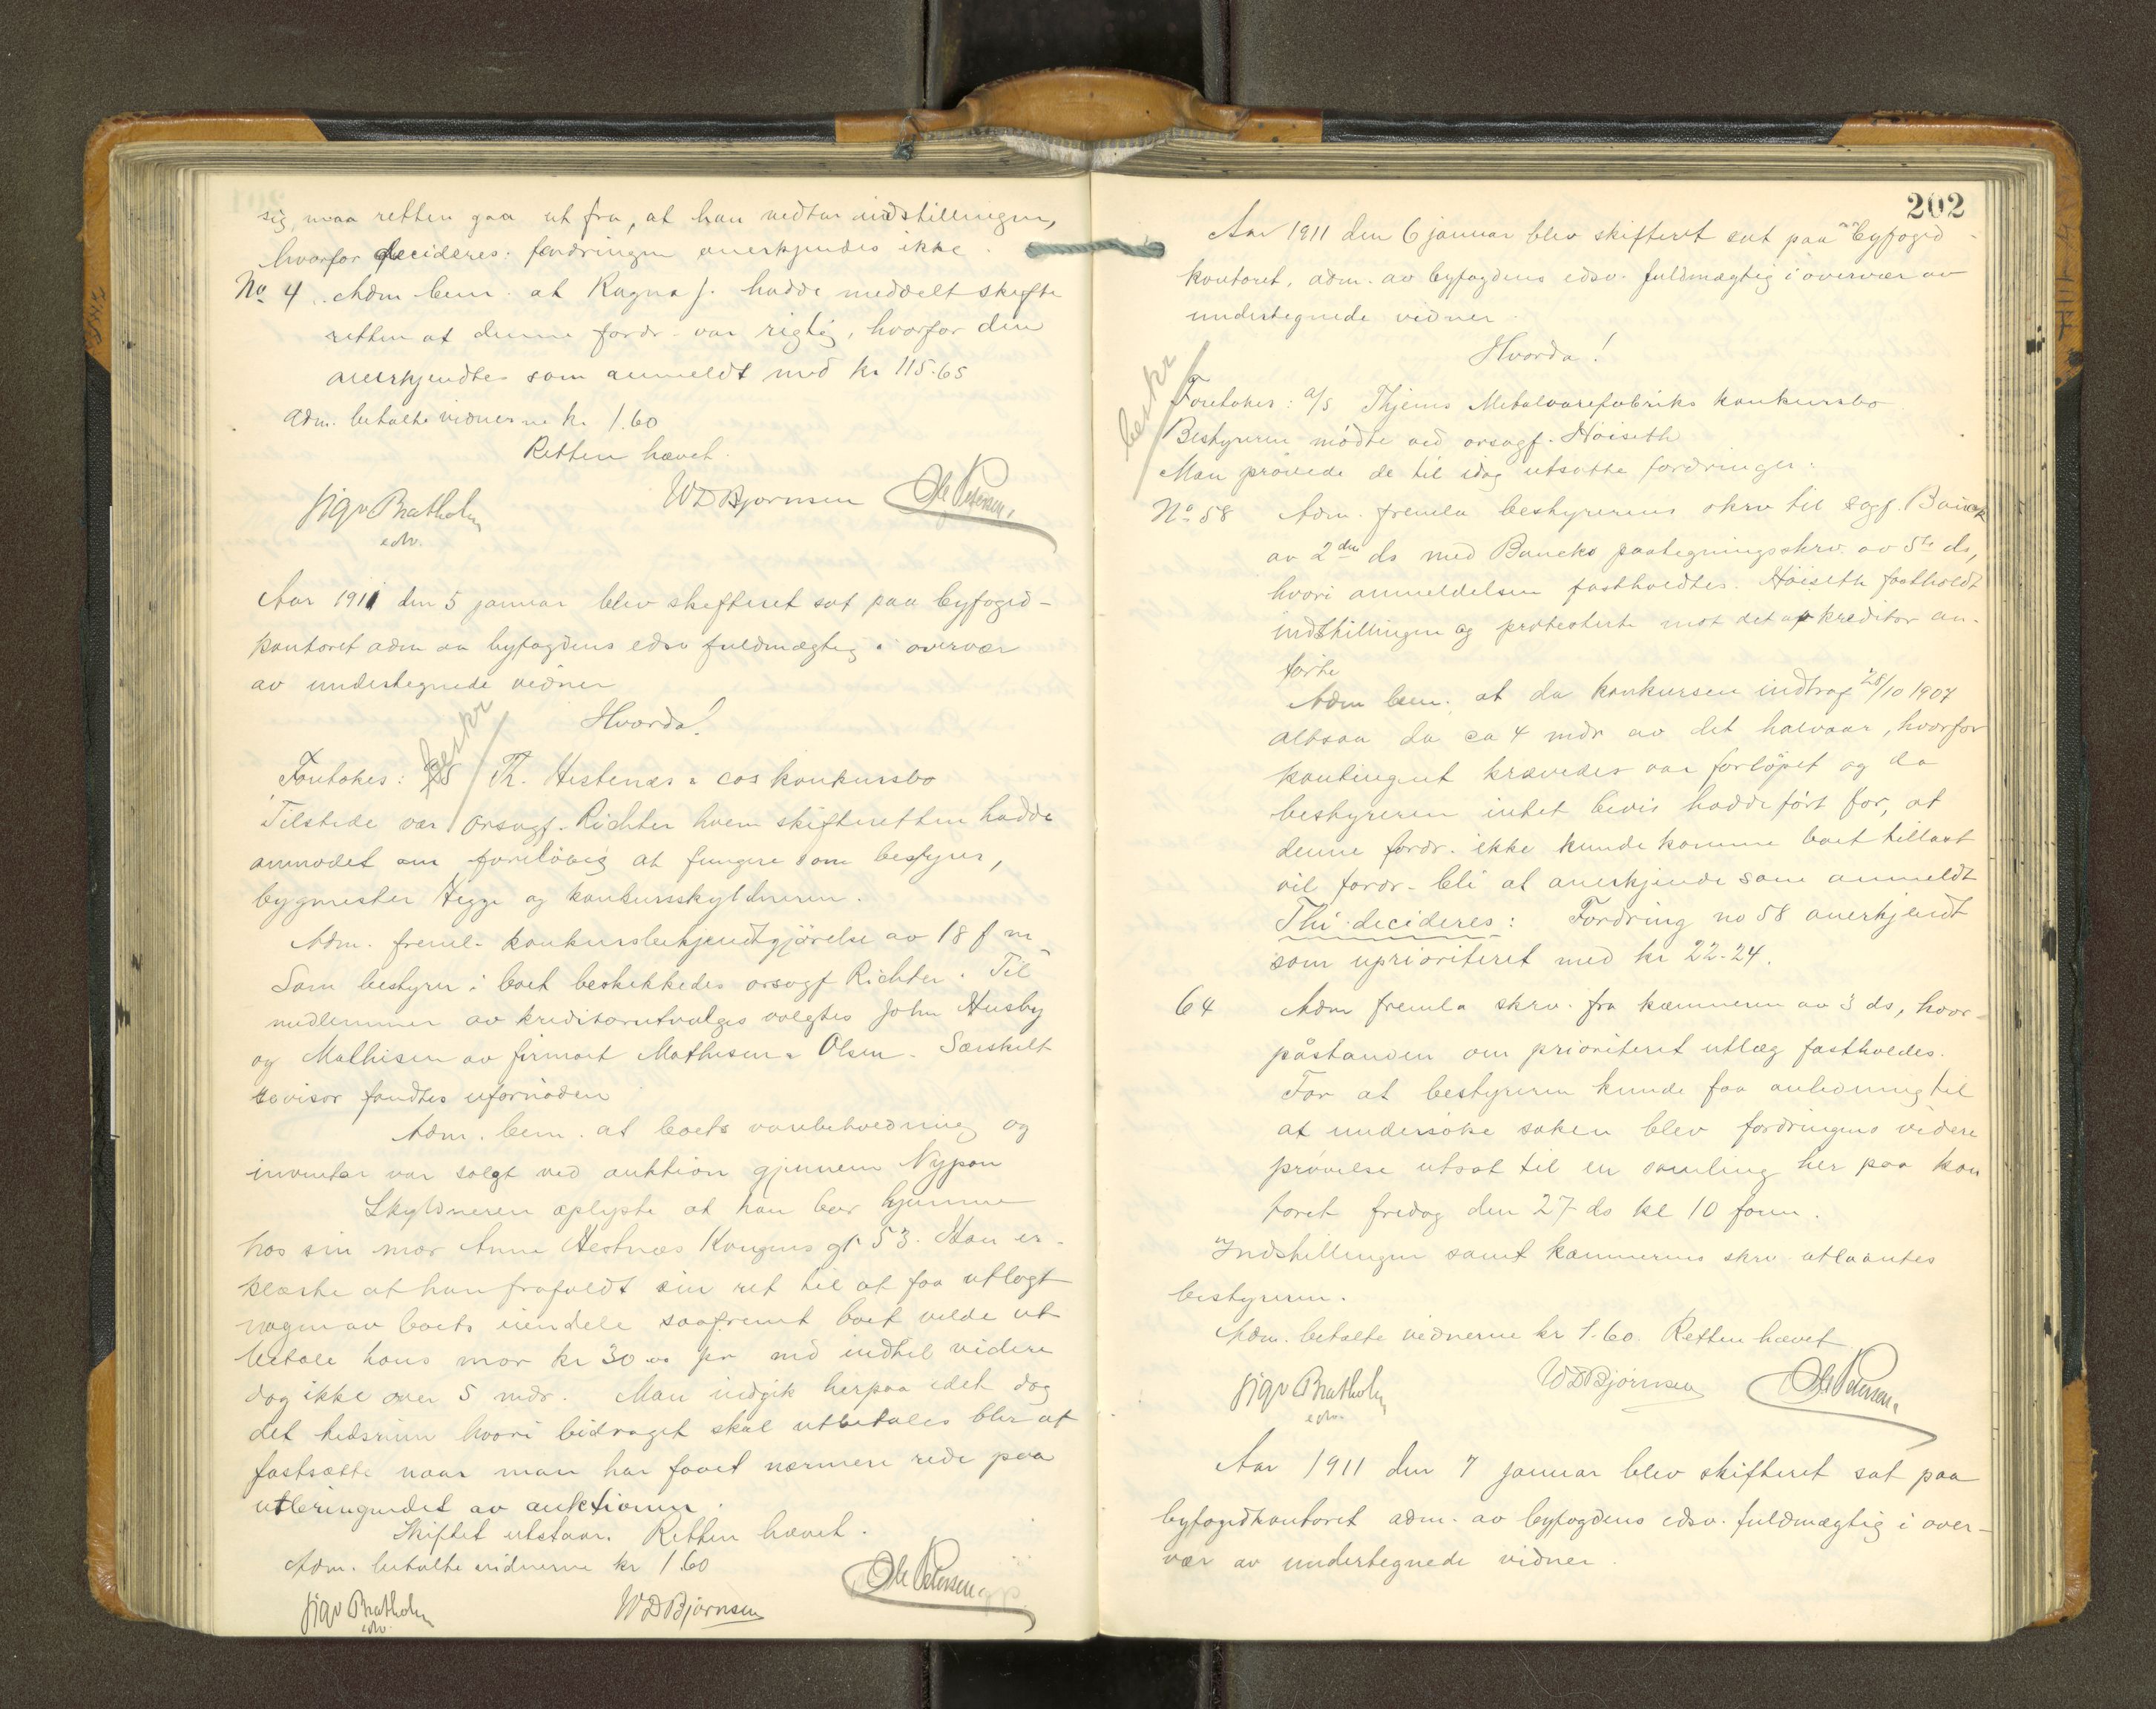 sig, maa retten gaa ut fra, at han vedtar indstillingen,
hvorfor decideres: fordringen anerkjendes ikke.
No 4. Adm bem. at Ragna J. hadde meddelt skifte
retten at denne fordr. var rigtig, hvorfor den
anerkjendtes som anmeldt med kr 115.65
Adm. betalte vidnerne kr. 1.60
Retten hævet.
Sigv Bratholm WDBjørnsen Ole Petersen.
edv.
Aar 1911 den 5 januar blev skifteret sat paa byfogid-
kontoret adm av byfogdens edsv fuldmægtig i overvær
av undertegnede vidner
Hvorda!
beskr
Foretokes: Th. Hestenæs & cos konkursbo
Tilstede var orsagf. Richter hvem skifteretten hadde
anmodet om foreløbig at fungere som bestyrer,
bygmester Hegge og konkursskyldneren.
Adm. freml. konkursbekjendtgjørelse av 18 f m
Som bestyrer i boet beskikkedes orsagf Richter. Til
medlemmer av kreditorutvalget valgtes John Husby
og Mathisen av firmaet Mathisen & Olsen. Særskilt
revisor fandtes ufornøden
Adm. bem. at boets varebeholdning og
inventar var solgt ved auktion gjennem Nypan
Skyldneren oplyste at han bor hjemme
hos sin mor Anna Hestnæs Kongens gt 53. Han er-
klærte at han frafaldt sin ret til at faa utlagt
nogen av boets eiendele saafremt boet vilde ut
betale hans mor kr 30.00 pr md indtil videre
dog ikke over 5 mdr. Man indgik herpaa idet dog
det tidsrum hvori bidraget skal utbetales blir at
fastsætte naar man har faaet nærmere rede paa
utbringendet av auktionen.
Skiftet utstaar. Retten hævet.
Adm. betalte vidnerne kr 1.60
Sigv Bratholm WDBjørnsen Ole Petersen.
edv.
202
Aar 1911 den 6 januar blev skifteret sat paa byfogid-
kontoret, adm. av byfogdens edsv. fuldmægtig i overvær av
undertegnede vidner.
Hvorda!
beskr
Foretokes: a/s Thjems Metalvarefabriks konkursbo
Bestyreren mødte ved orsagf. Høiseth
Man prøvede de til idag utsatte fordringer:
No 58 Adm. fremla bestyrerens skrv til sagf. Bauck
av 2den ds med Baucks paategningsskrv. av 5te ds,
hvori anmeldelsen fastholdtes. Høiseth fastholdt
indstillingen og protesterte mot det av kreditor an-
førte
Adm bem. at da konkursen indtraf 28/10 1907
altsaa da ca 4 mdr av det halvaar, hvorfor
kontingent krævedes var forløpet og da
bestyreren intet bevis hadde ført for, at
denne fordr. ikke kunde komme boet tillast
vil fordr. bli at anerkjende som anmeldt
Thi decideres: Fordring no 58 anerkjendt
som uprioriteret med kr 22.24.
64 Adm fremla skrv. fra kæmneren av 3 ds, hvor-
påstanden om prioriteret utlæg fastholdes.
For at bestyreren kunde faa anledning til
at undersøke saken blev fordringens videre
prøvelse utsat til en samling her paa kon
toret fredag den 27 ds kl 10 form.
Indstillingen samt kæmnerens skrv utlaantes
bestyreren.
Adm. betalte vidnerne kr 1.60. Retten hævet
Sigv Bratholm WDBjørnsen Ole Petersen.
edv.
Aar 1911 den 7 januar blev skifteret sat paa
byfogidkontoret adm. av byfogdens edsv. fuldmægtig i over-
vær av undertegnede vidner.